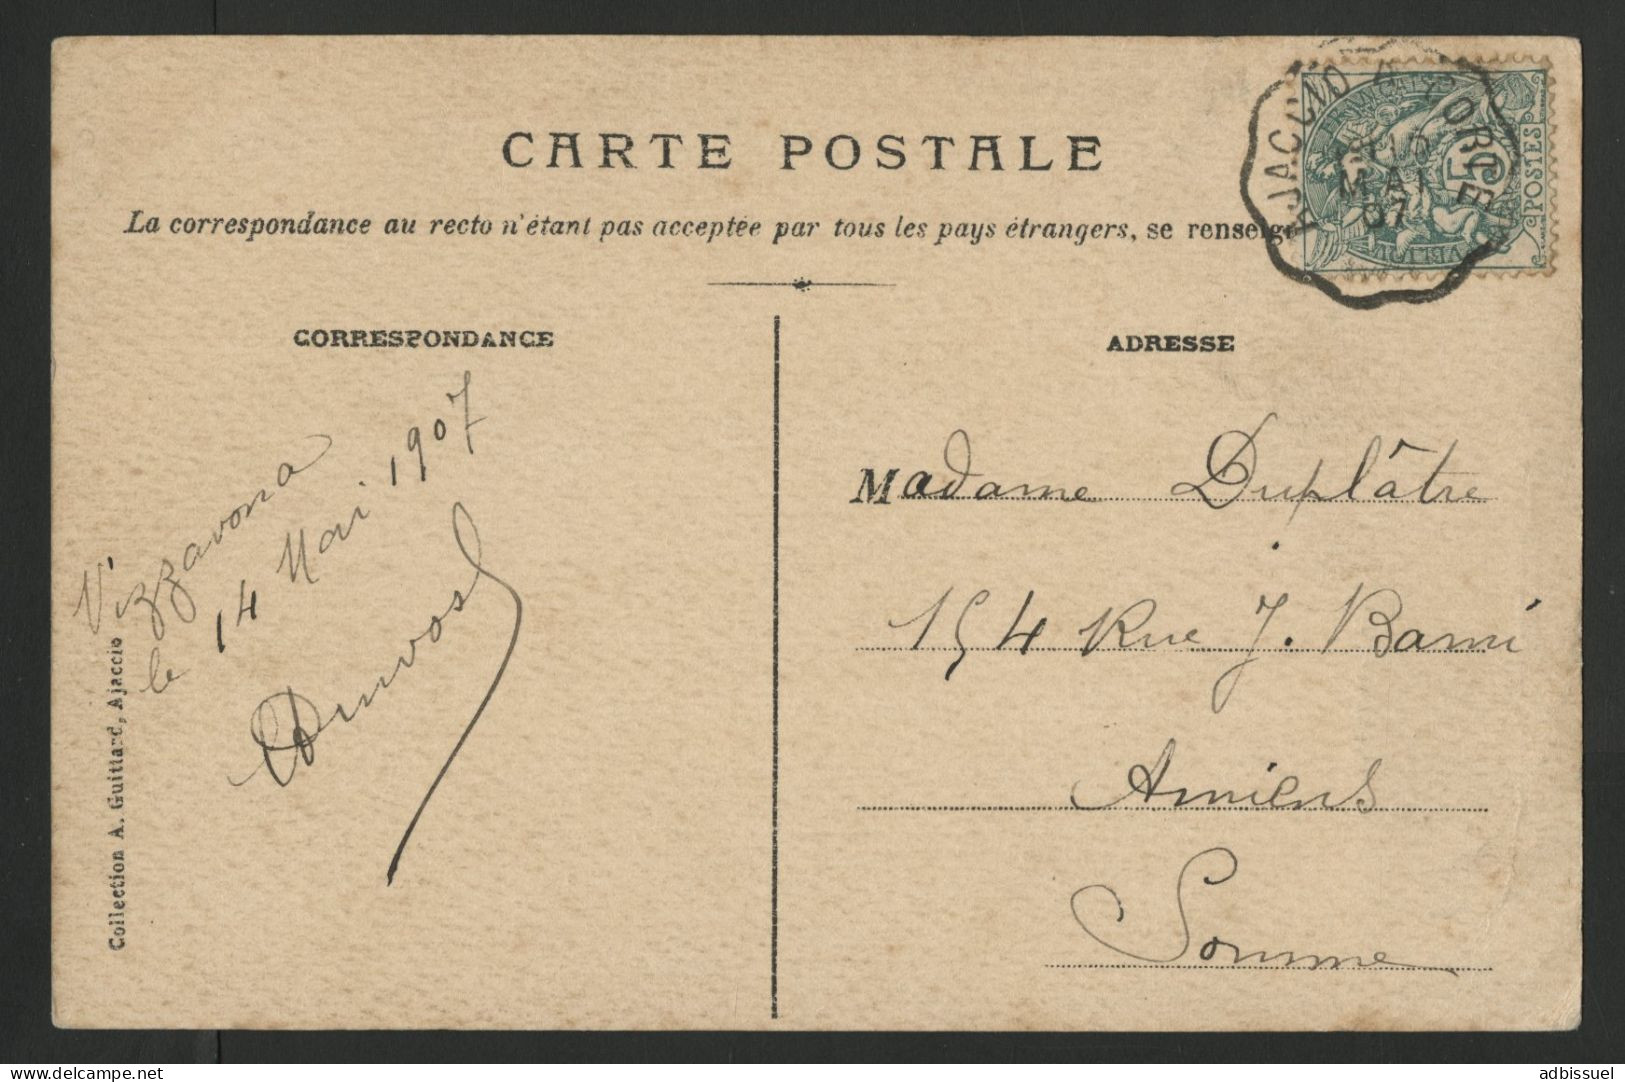 CARTE POSTALE
La correspondance au recto n'étant pas acceptée par tous les pays étrangers, se renseig
CORRESPONDANCE
Vizzavona
le 14 Mai 1907
Collection A. Guittard, Ajaccio
ADRESSE
Madame Duplâtre
154 Rue J. Barni
Amiens
Somme
AJACCIO A CORTE
MAI
07
5
POSTES
www.delcampe.net
adbissuel